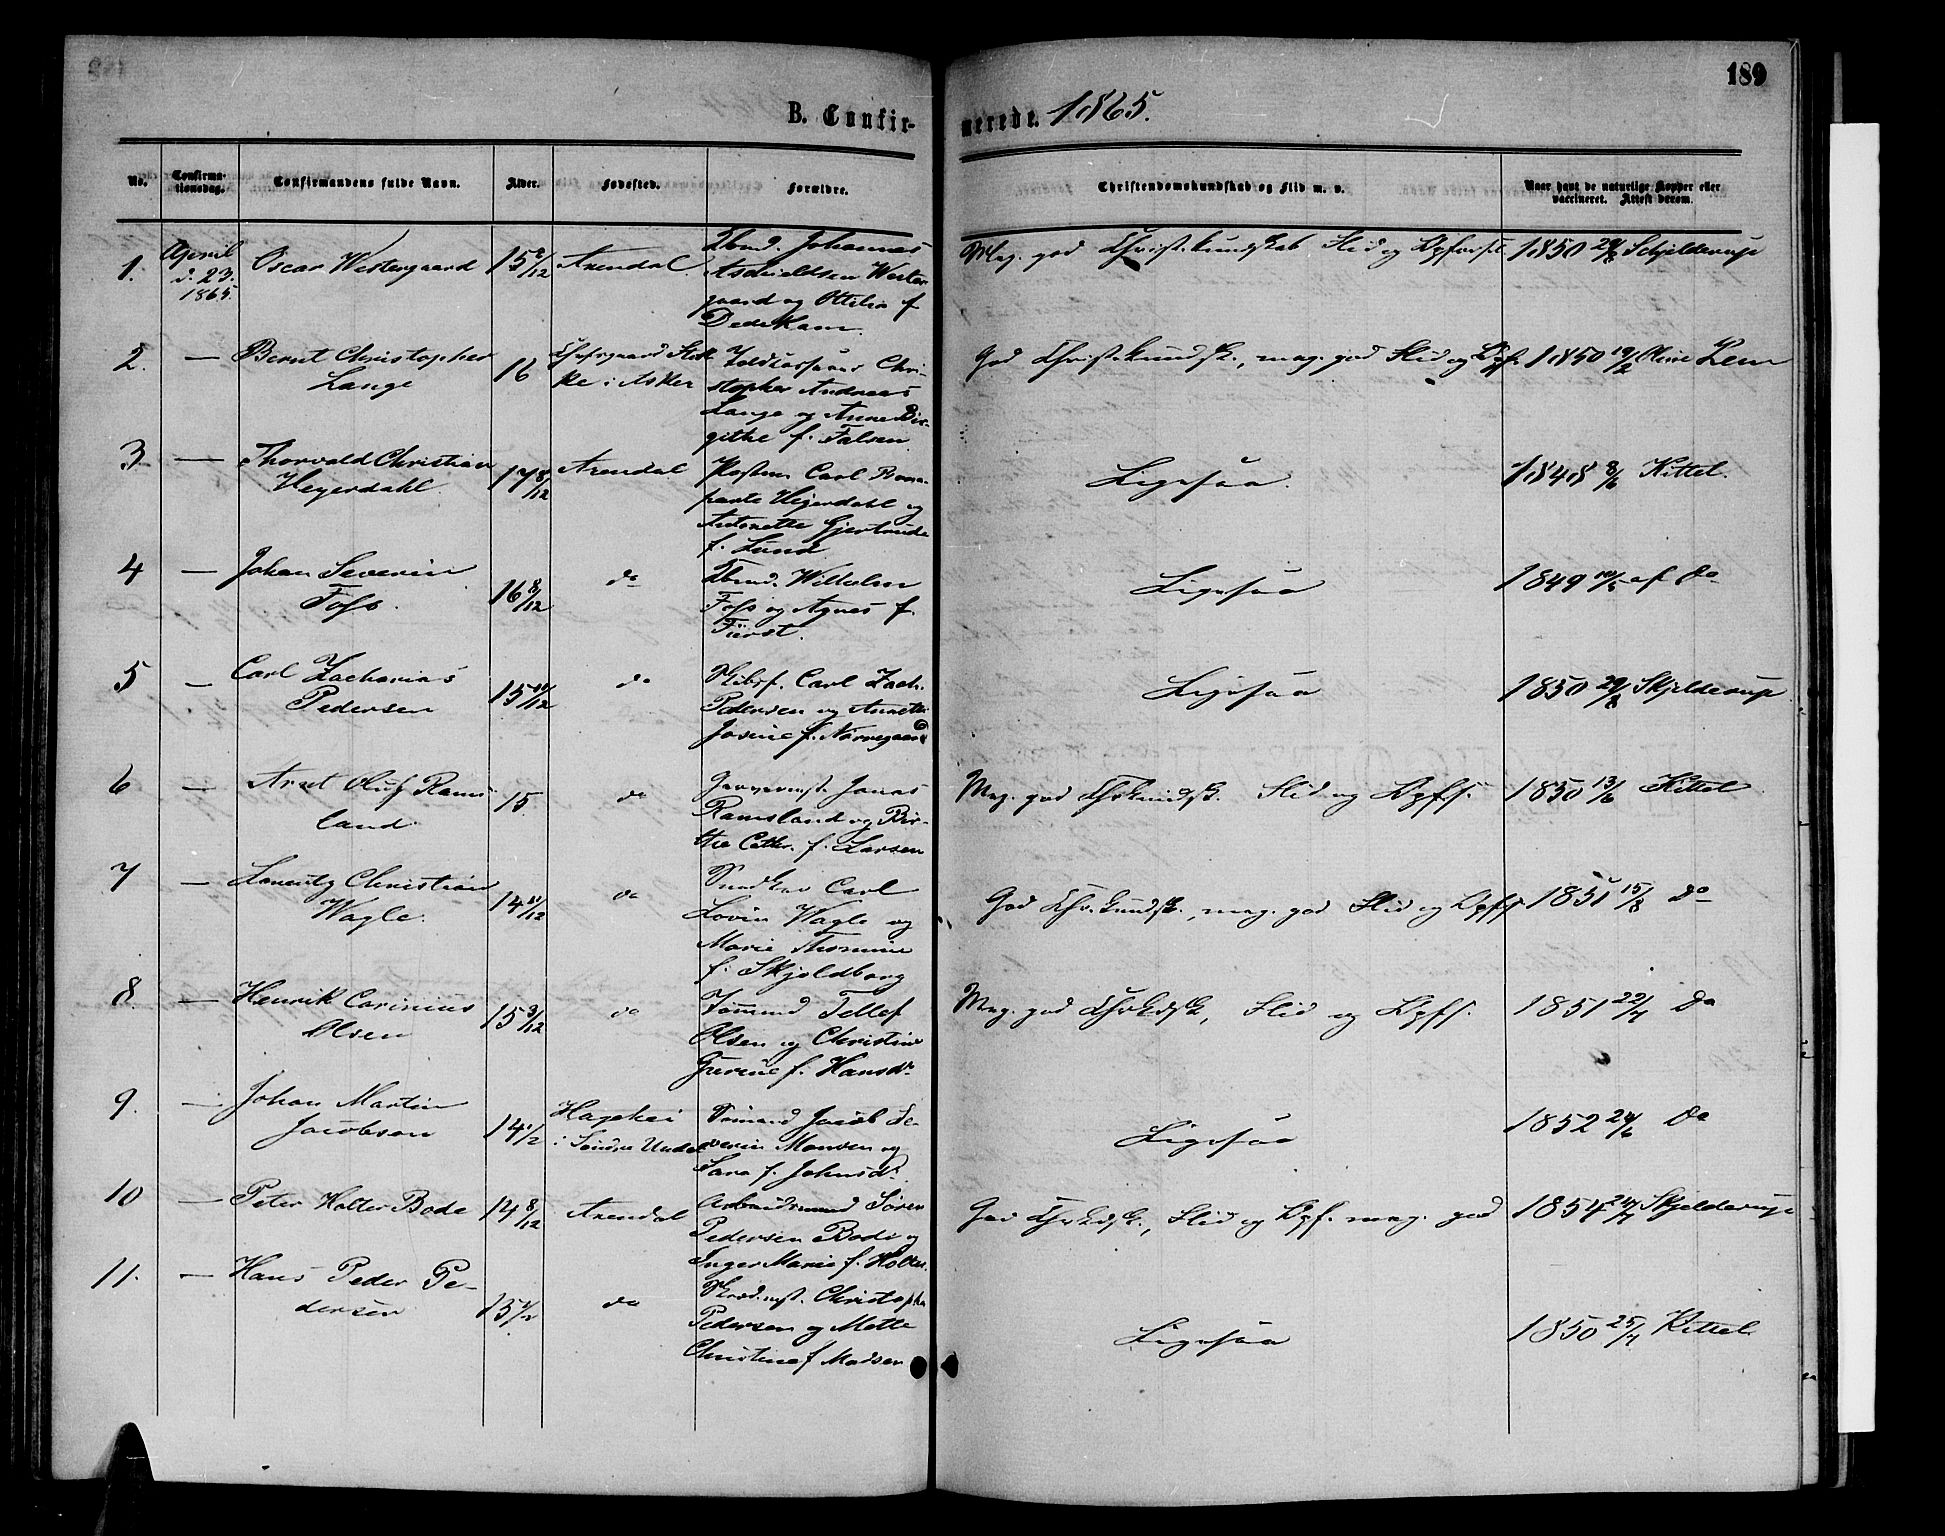 189
B. Confir-
merede. 1865.
No.
Confirma-
tionsdag.
Confirmandens fulde Navn.
Alder.
Fødested.
Forældre.
Christendomskundskab og Flid m. v.
Naar havt de naturlige Kopper eller
vaccineret. Attest derom.
1. April
d. 23.
1865.
Oscar Westergaard
15 2/12
Arendal
Johannes
Wester
gaard og Ottilia f.
Dedekam
Meg. god Christ.kundskab Flid og
1850 Schjelderup
2. — Bernt Christopher
Lange
16
i Asker
Chri-
stopher Andreas
Lange og Anne Bir-
githe f. Falsen
God Christ.kundsk., meg. god Flid og
1850 19/2
3 — Thorvald Christian
Heyerdahl
17 8/12
Arendal
Carl Bona-
parte Heyerdahl og
Antonette Gjertrude
f. Lund
Ligesaa
1848 8/6 Kittel.
4 — Johan Severin
Foss.
16 8/12
do
Wilhelm
Foss og Agnes f.
Fürst.
Ligesaa
1849 af do
5 — Carl Zacharias
Pedersen
15 10/12
do
Skibsf. Carl Zach.
Pedersen og Annette
Josine f. Norregaard
Ligesaa
1850 29/8 Skjelderup
6 — Arnt Oluf Rams
land.
15
do
Garverm. Jonas
Ramsland og Bir-
the Cathr. f. Larsen
Meg. god Flid og
1850 13/6 Kittel
7 — Lauritz Christian
Wagle.
14 11/12
do
Snedker Carl
Lovin Wagle og
Marie Thomine
f. Skjoldborg
God Chr.kundsk., meg. god Flid og
1851 15/8 do
8. — Henrik Carinius
Olsen
15 3/12
do
Tømmermd Tellef
Olsen og Christine
Gurine f. Hansd.
Meg. god Chrkdsk, Flid og
1851 22/7 do
9. — Johan Martin
Jacobsen
14 1/2
i Søndre Undal
Sømand Jacob Se
verin Monsen og
Sara f. Johnsd.
Ligesaa
1852 24/6 do
10 — Peter Holter Bode
14 8/12
Arendal
Arbeidsmand Søren
Pedersen Bode og
Inger Marie f. Holter.
God Chrkdsk., Flid og meg. god
1854 Skjelderup
11. — Hans Peder Pe-
dersen
15 1/2
do
Skræd.mst. Christopher
Pedersen og Mette
Christine f. Madsen
Ligesaa
1850 25/7 Kittel